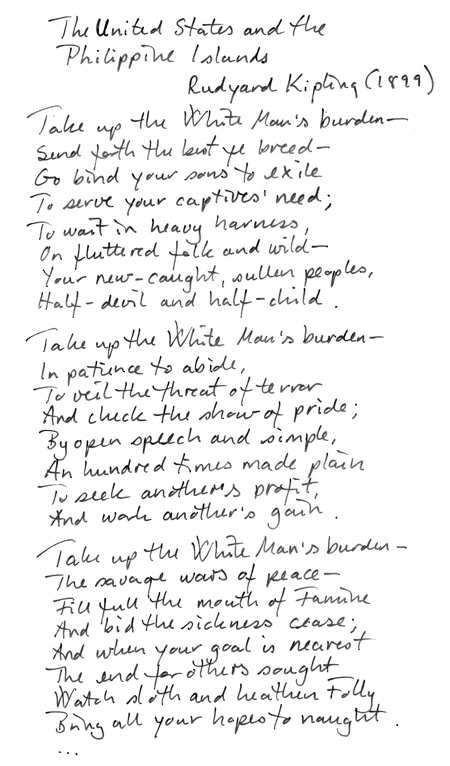 The United States and the
Philippine Islands
Rudyard Kipling (1899)
Take up the White Man's burden—
Send forth the best ye breed—
Go bind your sons to exile
To serve your captives' need;
To wait in heavy harness,
On fluttered folk and wild—
Your new-caught, sullen peoples,
Half-devil and half-child.
Take up the White Man's burden—
In patience to abide,
To veil the threat of terror
And check the show of pride;
By open speech and simple,
An hundred times made plain
To seek another's profit,
And work another's gain.
Take up the White Man's burden—
The savage wars of peace—
Fill full the mouth of Famine
And bid the sickness cease;
And when your goal is nearest
The end for others sought
Watch sloth and heathen Folly
Bring all your hopes to naught.
...